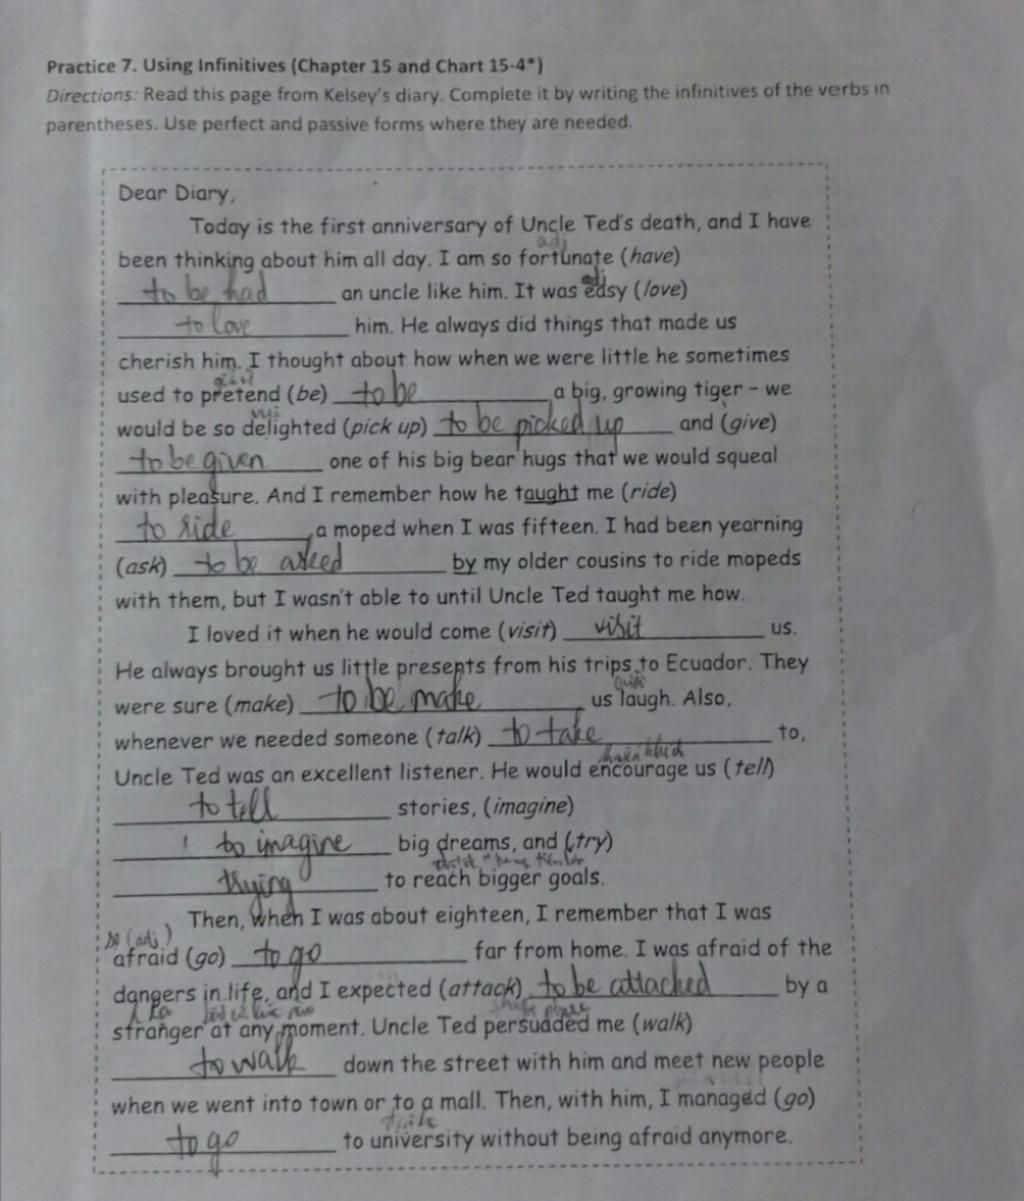 Practice 7. Using Infinitives (Chapter 15 and Chart 15-4*)
Directions: Read this page from Kelsey's diary. Complete it by writing the infinitives of the verbs in
parentheses. Use perfect and passive forms where they are needed.
Dear Diary,
Today is the first anniversary of Uncle Ted's death, and I have
adj
been thinking about him all day. I am so fortunate (have)
adj
to be had an uncle like him. It was easy (love)
to love him. He always did things that made us
cherish him. I thought about how when we were little he sometimes
used to pretend (be) to be a big, growing tiger – we
would be so delighted (pick up) to be picked up and (give)
to be given one of his big bear hugs that we would squeal
with pleasure. And I remember how he taught me (ride)
to ride a moped when I was fifteen. I had been yearning
(ask) to be asked by my older cousins to ride mopeds
with them, but I wasn't able to until Uncle Ted taught me how.
I loved it when he would come (visit) visit us.
He always brought us little presents from his trips to Ecuador. They
were sure (make) to be make us laugh. Also,
whenever we needed someone (talk) to take to,
Uncle Ted was an excellent listener. He would encourage us (tell)
to tell stories, (imagine)
to imagine big dreams, and (try)
trying to reach bigger goals.
Then, when I was about eighteen, I remember that I was
(adj)
afraid (go) to go far from home. I was afraid of the
dangers in life, and I expected (attack) to be attached by a
stranger at any moment. Uncle Ted persuaded me (walk)
to walk down the street with him and meet new people
when we went into town or to a mall. Then, with him, I managed (go)
to go to university without being afraid anymore.